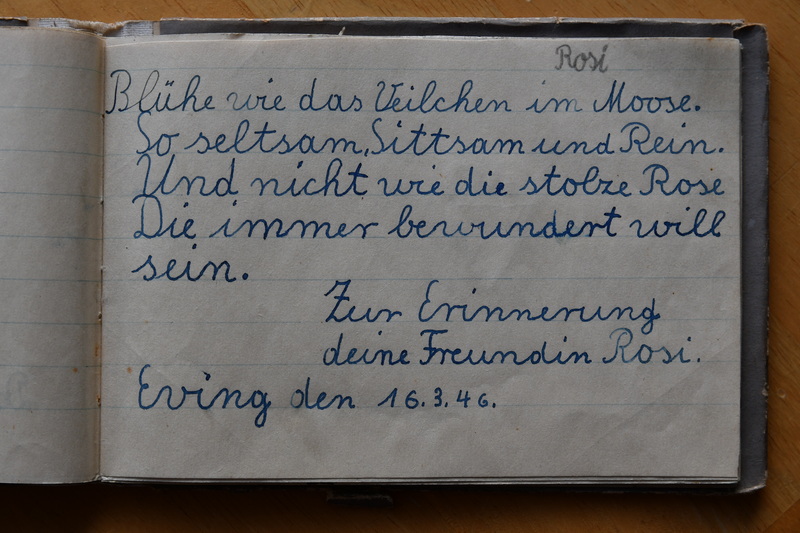 Rosi
Blühe wie das Veilchen im Moose.
So seltsam, Sittsam und Rein.
Und nicht wie die stolze Rose
Die immer bewundert will
sein.
Zur Erinnerung
deine Freundin Rosi.
Eving den 16.3.46.